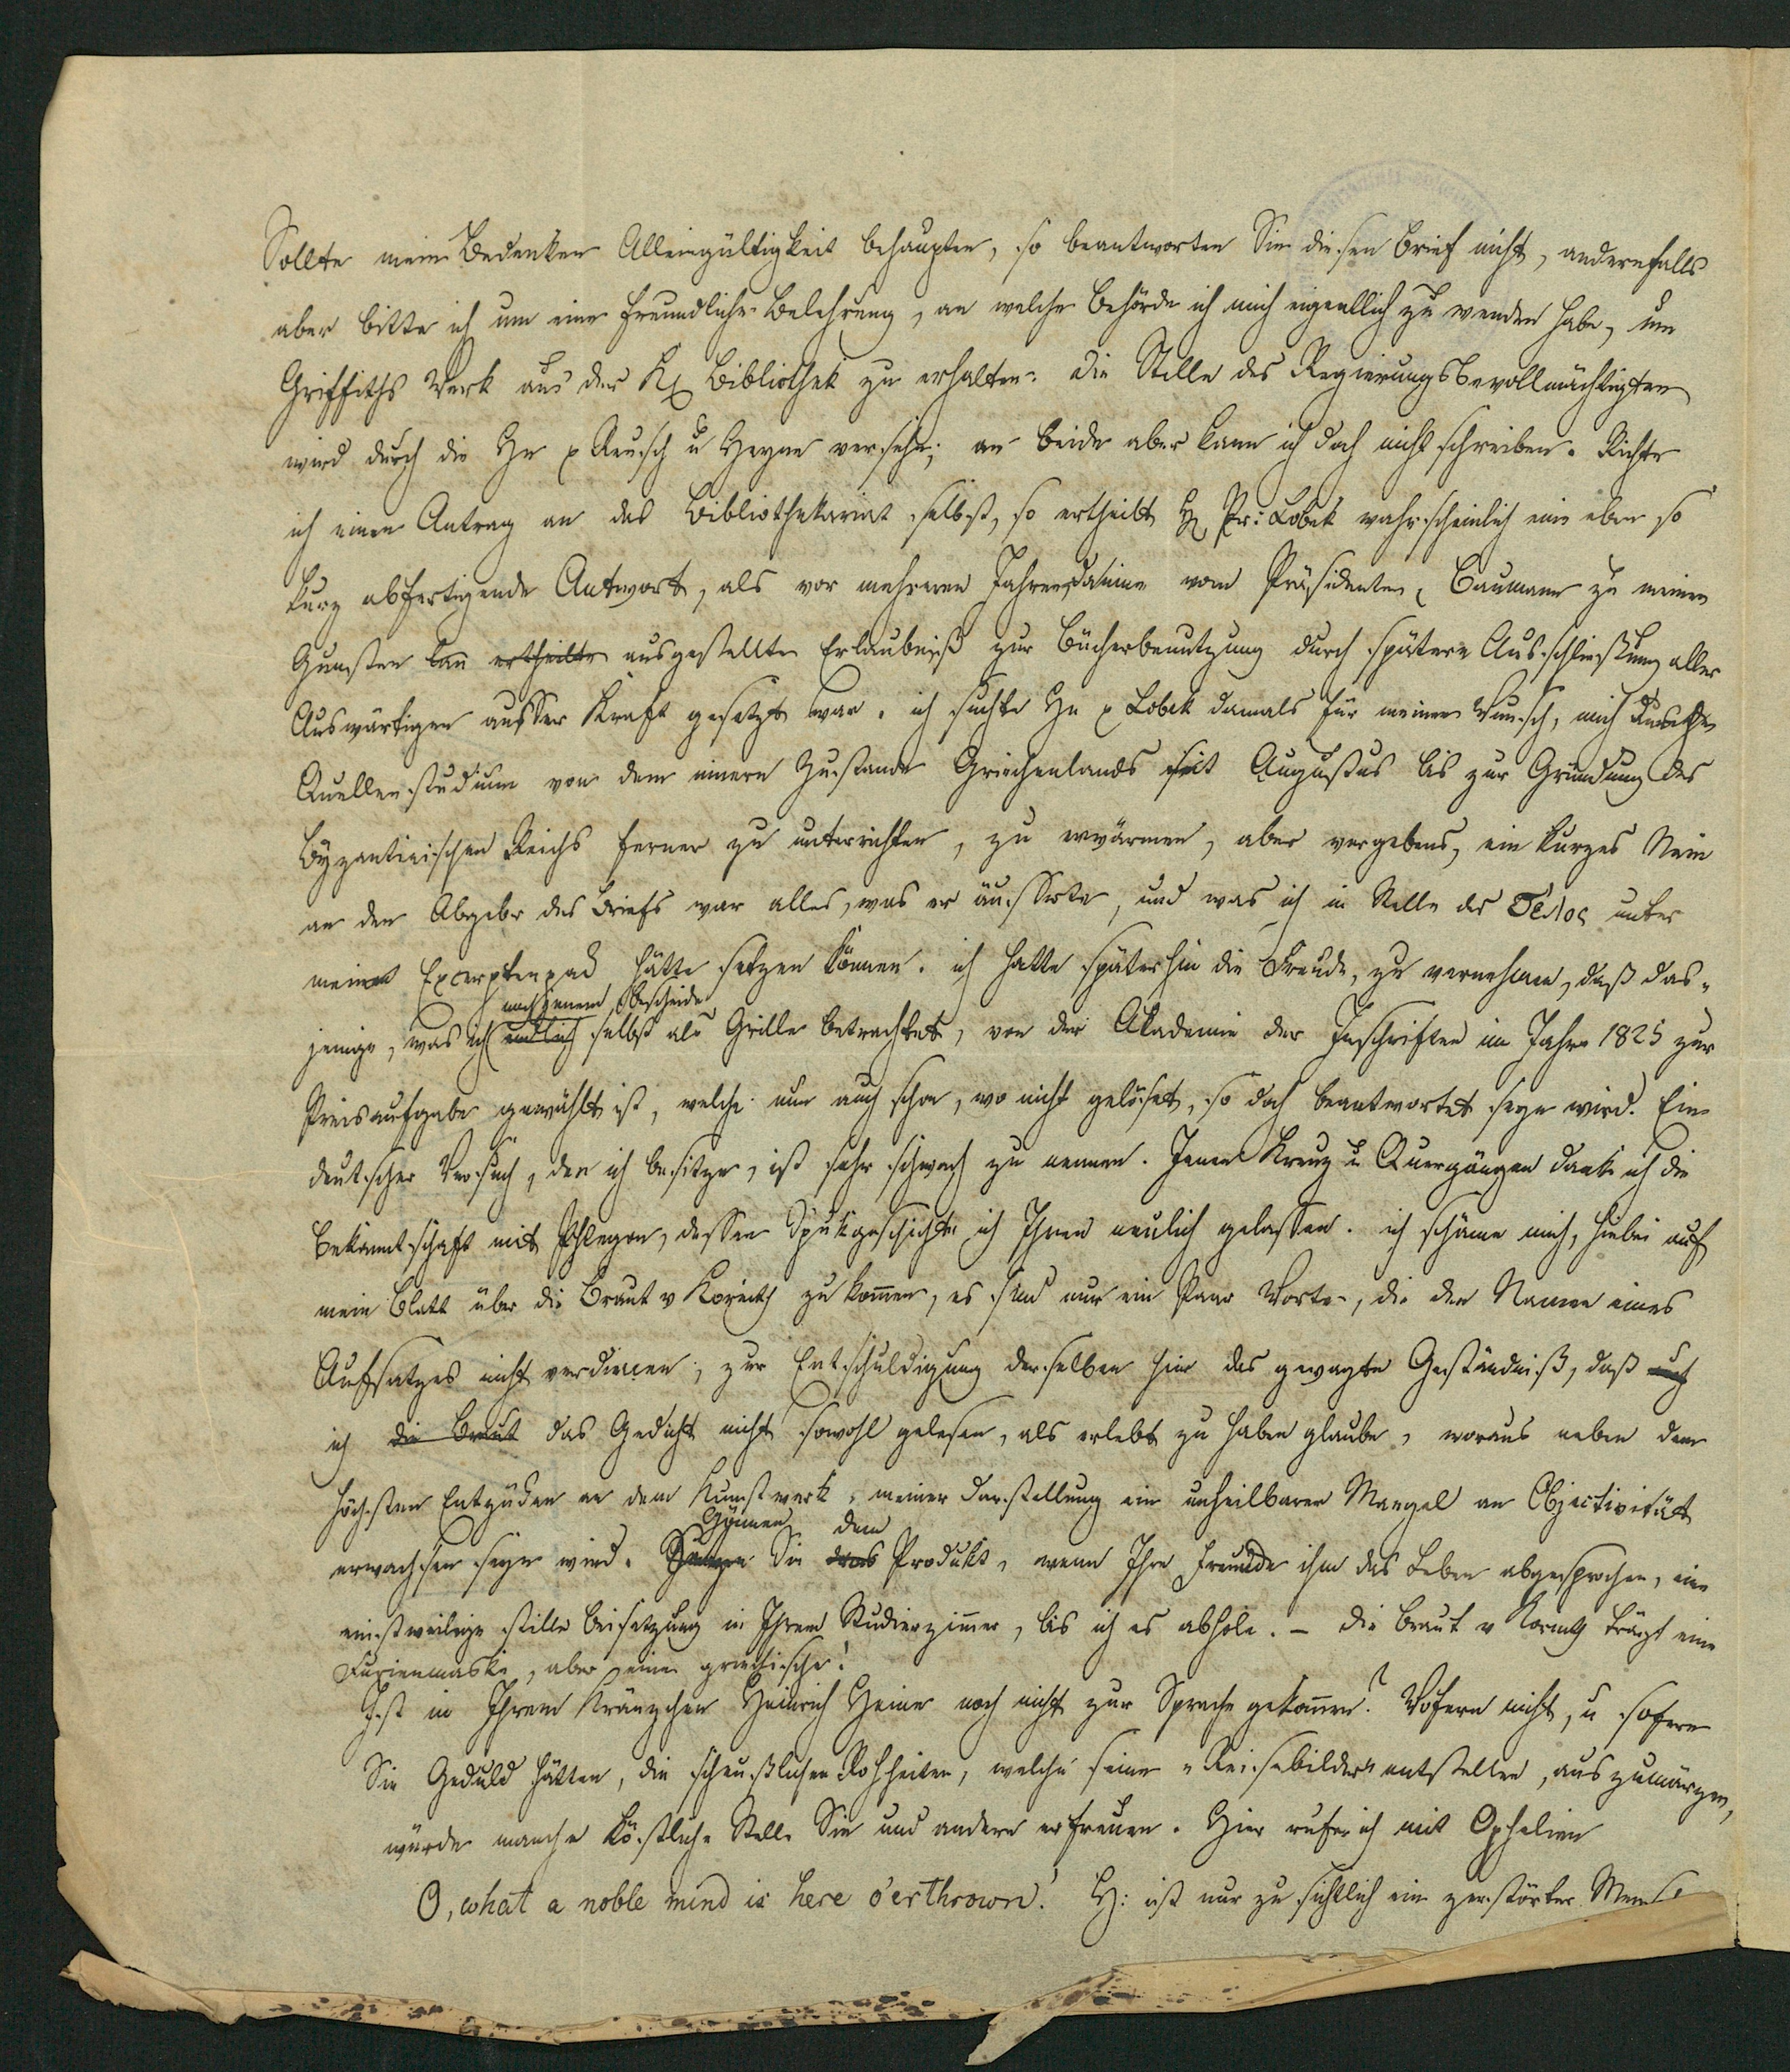 Sollte mein Bedenken Alleingültigkeit behaupten, so beantworten Sie diesen Brief nicht, andernfalls
aber bitte ich um eine freundliche Belehrung, an welche Behörde ich mich eigentlich zu wenden habe, um
Griffiths Werk aus der Kgl Bibliothek zu erhalten. Die Stelle des Regierungsbevollmächtigten
wird durch die Hn p Reusch u Heyne versehn; an beide aber kann ich doch nicht schreiben. Richte
ich einen Antrag an das Bibliothekariat selbst, so ertheilt H Pr: Lobek wahrscheinlich eine eben so
kurz abfertigende Antwort, als vor mehreren Jahren, da eine vom Präsidenten Baumann zu meinen
Gunsten ertheilte ausgestellte Erlaubniß zur Bücherbenutzung durch spätere Ausschließung aller
Auswärtigen ausser Kraft gesetzt war. ich suchte Hn p Lobek damals für meinen Wunsch, mich durch
Quellenstudium von dem innern Zustande Griechenlands seit Augustus bis zur Gründung des
Byzantinischen Reichs ferner zu unterrichten, zu erwärmen, aber vergebens, ein kurzes Nein
an den Abgeber des Briefs war alles, was er äusserte, und was ich in Stelle des Τέλος unter
meinen Excerpten hätte setzen können. ich hatte späterhin die Freude, zu vernehmen, daß das-
nach jenem Bescheide
jenige, was ich endlich selbst als Grille betrachtet, von der Akademie der Inschriften im Jahre 1825 zur
Preisaufgabe gewählt ist, welche nun auch schon, wo nicht gelöset, so doch beantwortet seyn wird. Ein
deutscher Versuch, den ich besitze, ist sehr schwach zu nennen. Jenen Kreuz u Quergängen dank ich die
Bekanntschaft mit Phlegon, dessen Spukgeschichte ich Ihnen neulich gelassen. ich schäme mich, hiebei auf
mein Blatt über die Braut v Korinth zu kommen, es sind nur ein Paar Worte, die den Namen eines
Aufsatzes nicht verdienen; zur Entschuldigung derselben hier das gewagte Geständniß, daß
ich die Braut das Gedicht nicht sowohl gelesen, als erlebt zu haben glaube, woraus neben dem
höchsten Entzücken an dem Kunstwerk, meiner Darstellung ein unheilbarer Mangel an Objectivität
Gönnen dem
erwachsen seyn wird. Sie das Produkt, wenn Ihre Freunde ihm das Leben abgesprochen, eine
einstweilige stille Beisetzung in Ihrem Studierzimmer, bis ich es abhole. – Die Braut v Korinth trägt eine
Furienmaske, aber eine griechische!
Ist in Ihrem Kränzchen Heinrich Heine noch nicht zur Sprache gekommen? Wofern nicht, u sofern
Sie Geduld hätten, die scheußlichen Rohheiten, welche seine „Reisebilder" entstellen, auszumärzen,
würde manche köstliche Stelle Sie und andere erfreuen. Hier rufe ich mit Ophelien
O, what a noble mind is here o'erthrown! H: ist nur zu sichtlich ein zerstörter Mensch